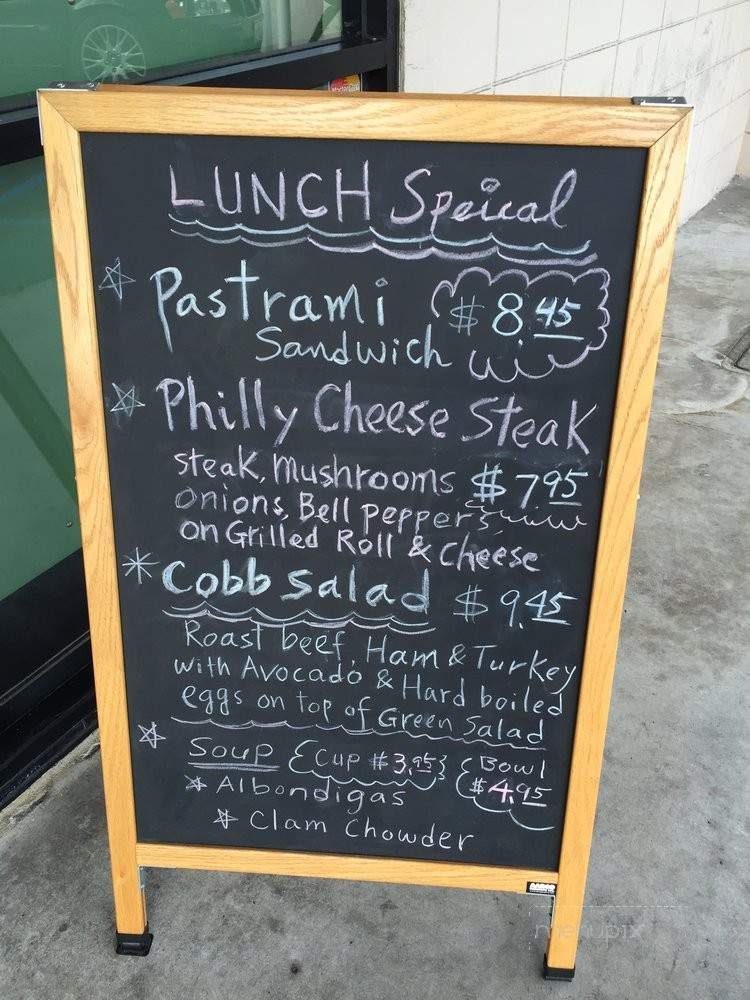 LUNCH Speical
Pastrami $8.45
Sandwich
Philly Cheese Steak
steak, Mushrooms $7.95
onions, Bell peppers,
on Grilled Roll & Cheese
Cobb Salad $9.45
Roast beef, Ham & Turkey
with Avocado & Hard boiled
eggs on top of Green Salad
Soup Cup $3.95 Bowl
$4.95
Albondigas
Clam Chowder
menupix